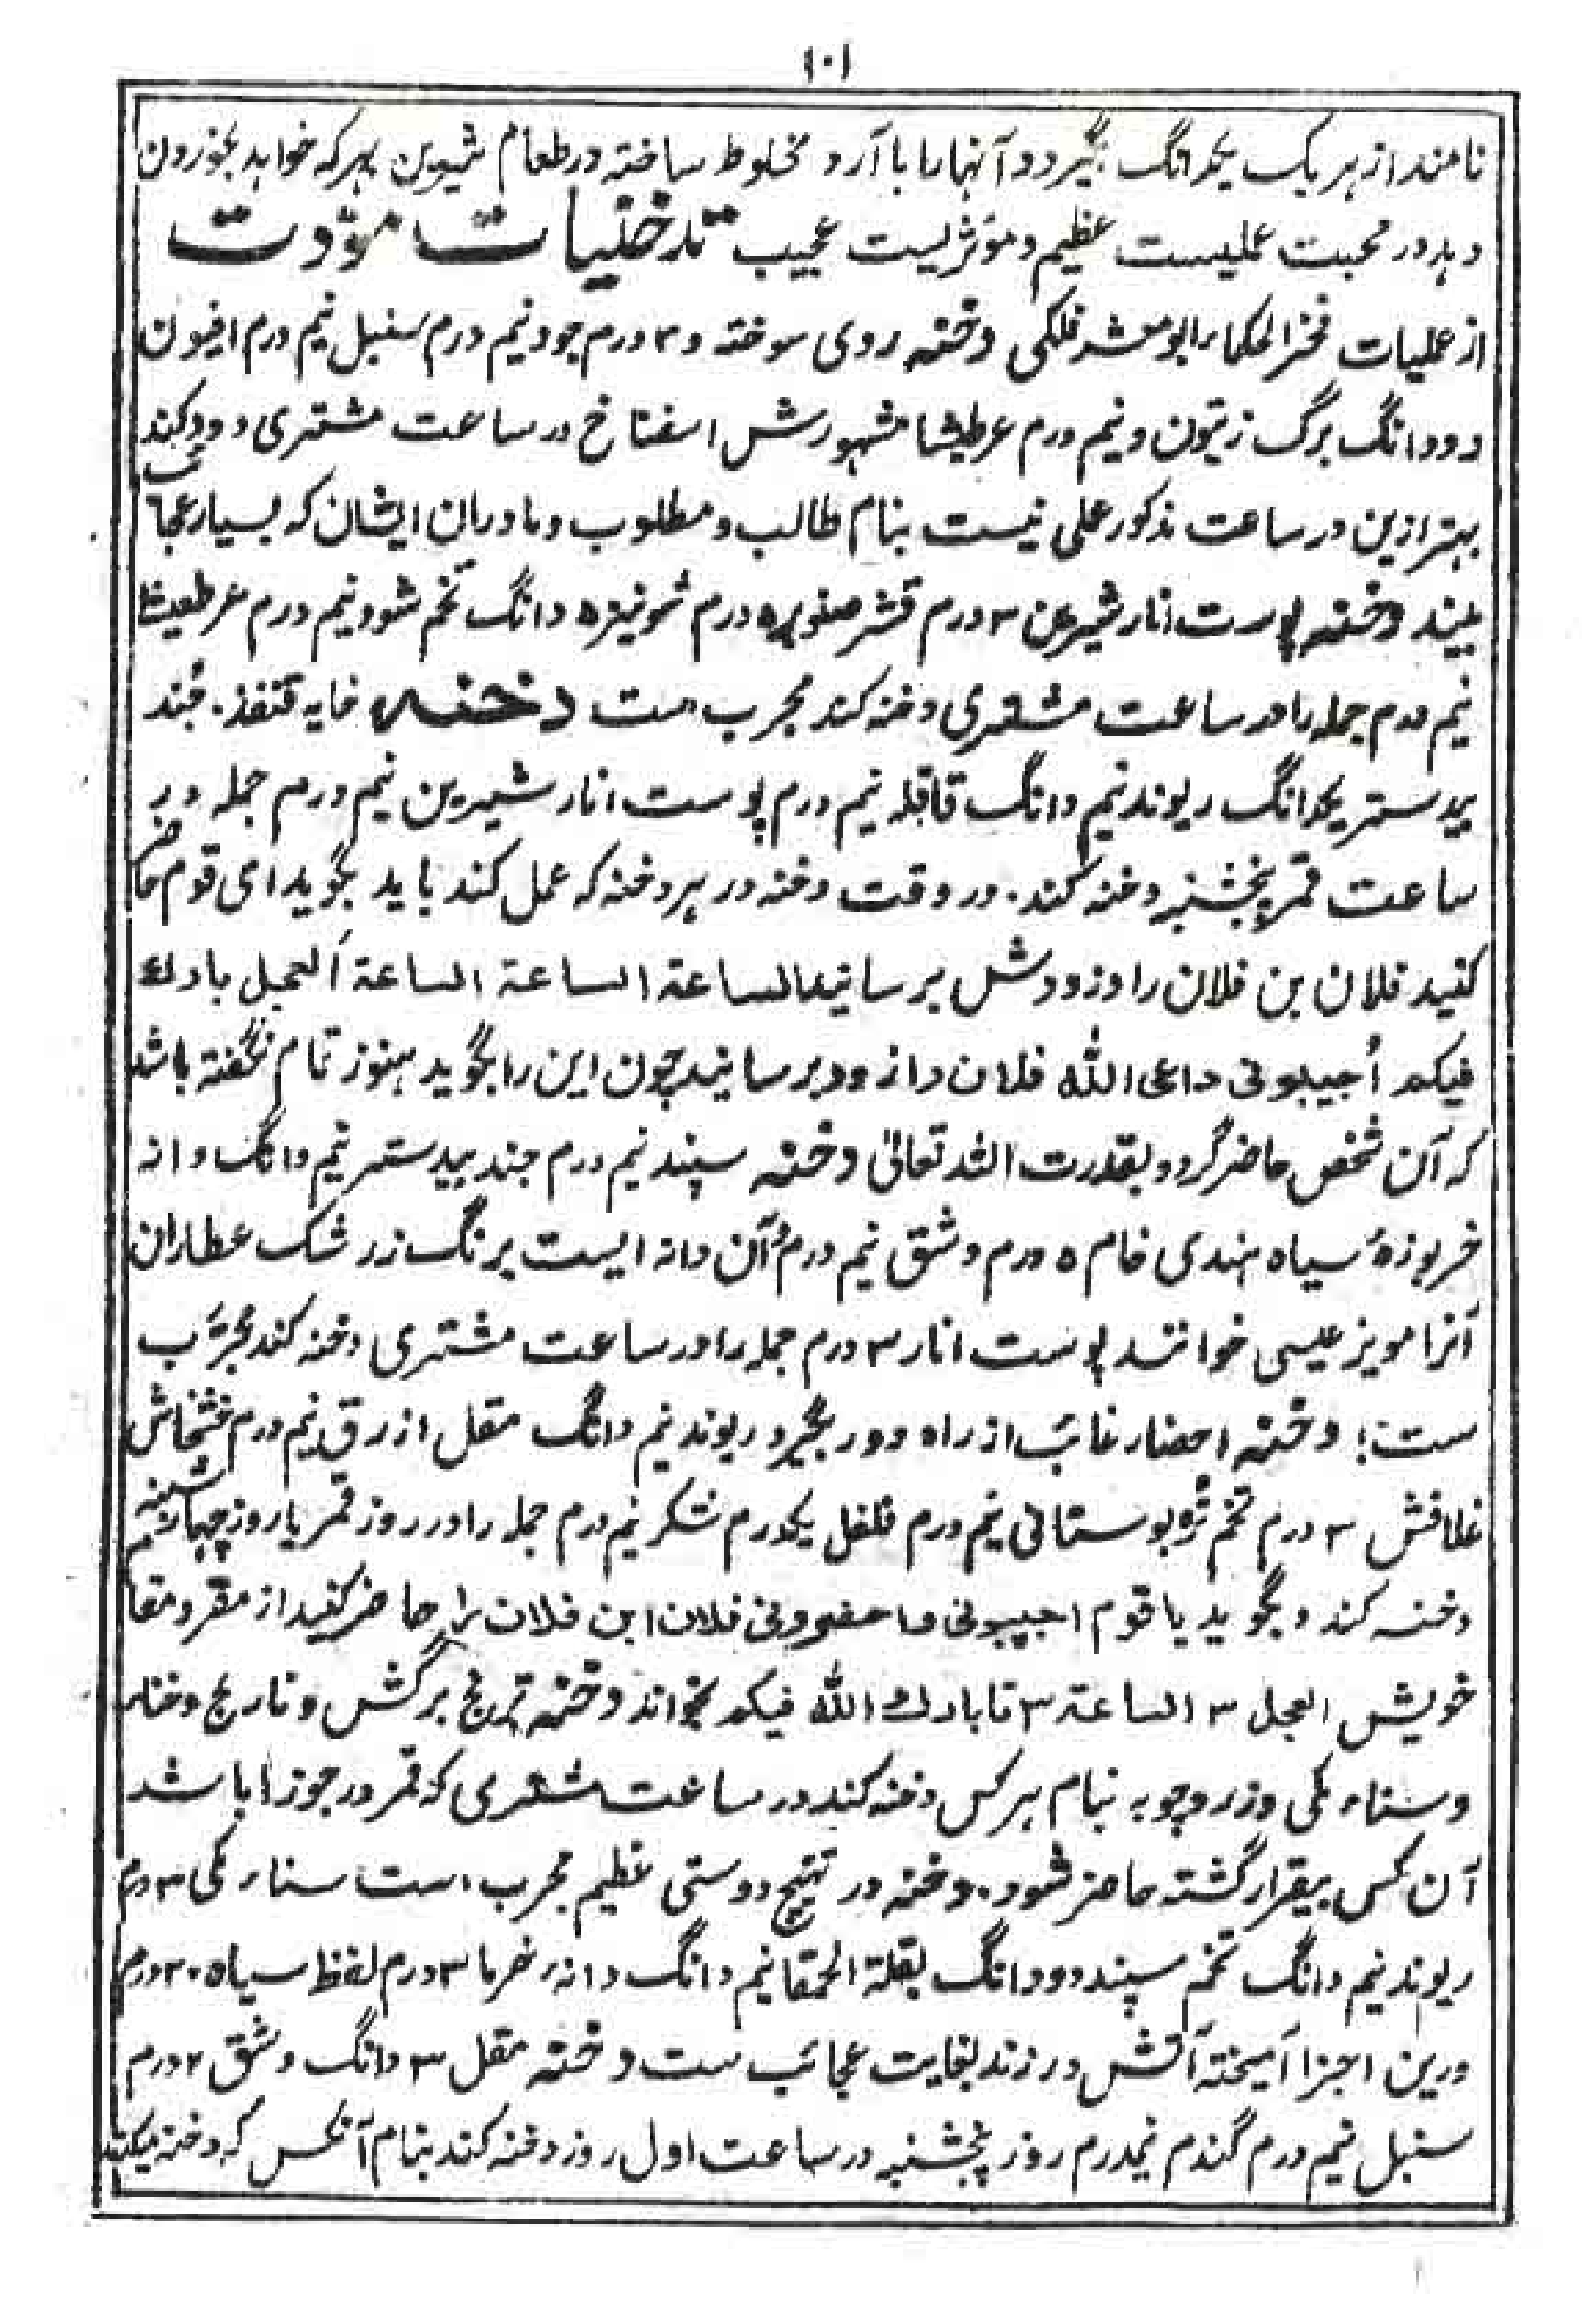 ۱۰۱
نامند از هر یک یکدانگ بگیرد و آنها را با آرد مخلوط ساخته در طعام شیرین بهر که خواهد بخوردن
دهد در محبت عملیست عظیم و موثریست عجیب تدخنیات مؤدت
از عملیات فخر الحکما ابو معشر فلکی دخنه روی سوخته و ۳ درم جو و نیم درم سنبل نیم درم افیون
دودانگ برگ زیتون و نیم درم عرطیثا مشهورش اسفناخ در ساعت مشتری دود کند
بهتر ازین در ساعت مذکور عملی نیست بنام طالب و مطلوب و مادران ایشان که بسیار عجائب
بیند دخنه پوست انار شیرین ۳ درم قشر صنوبر ۵ درم شونیز ۵ دانگ تخم شوونیم درم عرطیثا
نیم درم جمله را در ساعت مشتری دخنه کند مجرب ست دخنه خایه قنفذ. جُند
بیدستر یکدانگ ریوند نیم دانگ قاقله نیم درم پوست انار شیرین نیم درم جمله در
ساعت قمر پنجشنبه دخنه کند. در وقت دخنه در هر دخنه که عمل کند باید بگوید ای قوم حاضر
کنید فلان بن فلان را و زودش برسانید الساعة الساعة العجل بارك
فیکم أجیبونی داعی الله فلان را زود برسانید چون این را بگوید هنوز تمام نگفته باشد
که آن شخص حاضر گردد بقدرت الله تعالیٰ دخنه سپند نیم درم جند بیدستر نیم دانگ دانه
خربوزهٔ سیاه هندی خام ۵ درم وشق نیم درم و آن دانه ایست برنگ زرشک عطاران
آنرا مویز عیسی خوانند پوست انار ۳ درم جمله را در ساعت مشتری دخنه کند مجرّب
ست؛ دخنه احضار غائب از راه دور بگیرد ریوند نیم دانگ مقل ازرق نیم درم خشخاش
غلافش ۳ درم تخم بوستانی نیم درم فلفل یکدرم شکر نیم درم جمله را در روز قمر یا روز چهارشنبه
دخنه کند و بگوید یا قوم اجیبونی واحضرونی فلان ابن فلان را حاضر کنید از مقر و مقام
خویش العجل ۳ الساعة ۳ تا بارك الله فیکم بخواند دخنه ترنج برگش و نارنج وخنار
وسناء مکی وزروچوبه بنام هر کس دخنه کند در ساعت مشتری که قمر در جوزا باشد
آن کس بیقرار گشته حاضر شود. دخنه در تهیج دوستی عظیم مجرب است سناء مکی ۳ درم
ریوند نیم دانگ تخم سپند دودانگ بقلة الحمقا نیم دانگ دانه خرما ۳ درم لفظ سیاه ۲۰ درم
درین اجزا آمیخته آتش در زند بغایت عجائب ست دخنه مقل ۳ دانگ وشق ۲ درم
سنبل نیم درم گندم نیمدرم روز پنجشنبه در ساعت اول روز دخنه کند بنام آنکس که دخنه میکند